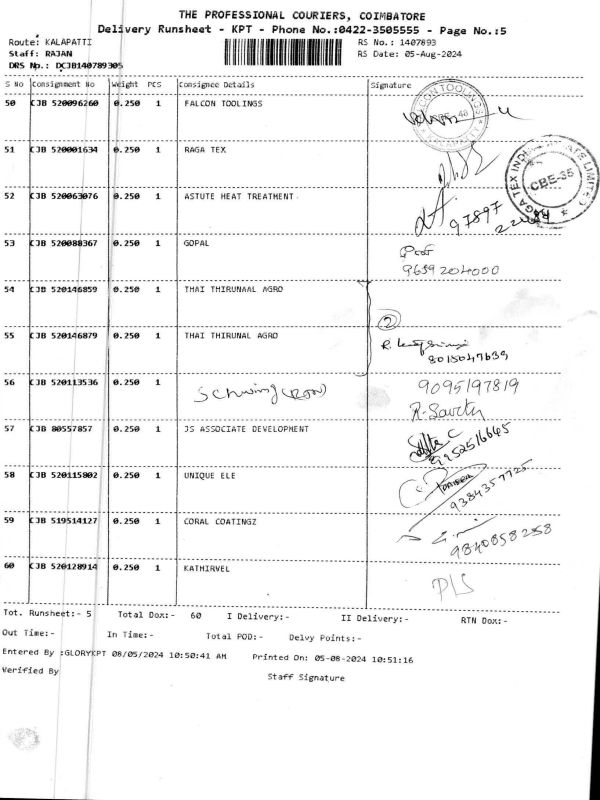 THE PROFESSIONAL COURIERS, COIMBATORE
Delivery Runsheet - KPT - Phone No.:0422-3505555 - Page No.:5
Route: KALAPATTI RS No.: 1407893
Staff: RAJAN RS Date: 05-Aug-2024
DRS No.: DCJB140789305
S No Consignment No Weight PCS Consignee Details Signature
50 CJB 520096260 0.250 1 FALCON TOOLINGS
51 CJB 520001634 0.250 1 RAGA TEX
CBE-35
52 CJB 520063076 0.250 1 ASTUTE HEAT TREATMENT
97897
53 CJB 520088367 0.250 1 GOPAL
9659204000
54 CJB 520146859 0.250 1 THAI THIRUNAAL AGRO
2
55 CJB 520146879 0.250 1 THAI THIRUNAL AGRO
8015047639
56 CJB 520113536 0.250 1 Schwing 9095197819
57 CJB 80557857 0.250 1 JS ASSOCIATE DEVELOPMENT
9952516645
58 CJB 520115802 0.250 1 UNIQUE ELE
9384357725
59 CJB 519514127 0.250 1 CORAL COATINGZ
9840858258
60 CJB 520128914 0.250 1 KATHIRVEL
Tot. Runsheet:- 5 Total Dox:- 60 I Delivery:- II Delivery:- RTN Dox:-
Out Time:- In Time:- Total POD:- Delvy Points:-
Entered By :GLORYKPT 08/05/2024 10:50:41 AM Printed On: 05-08-2024 10:51:16
Verified By Staff Signature